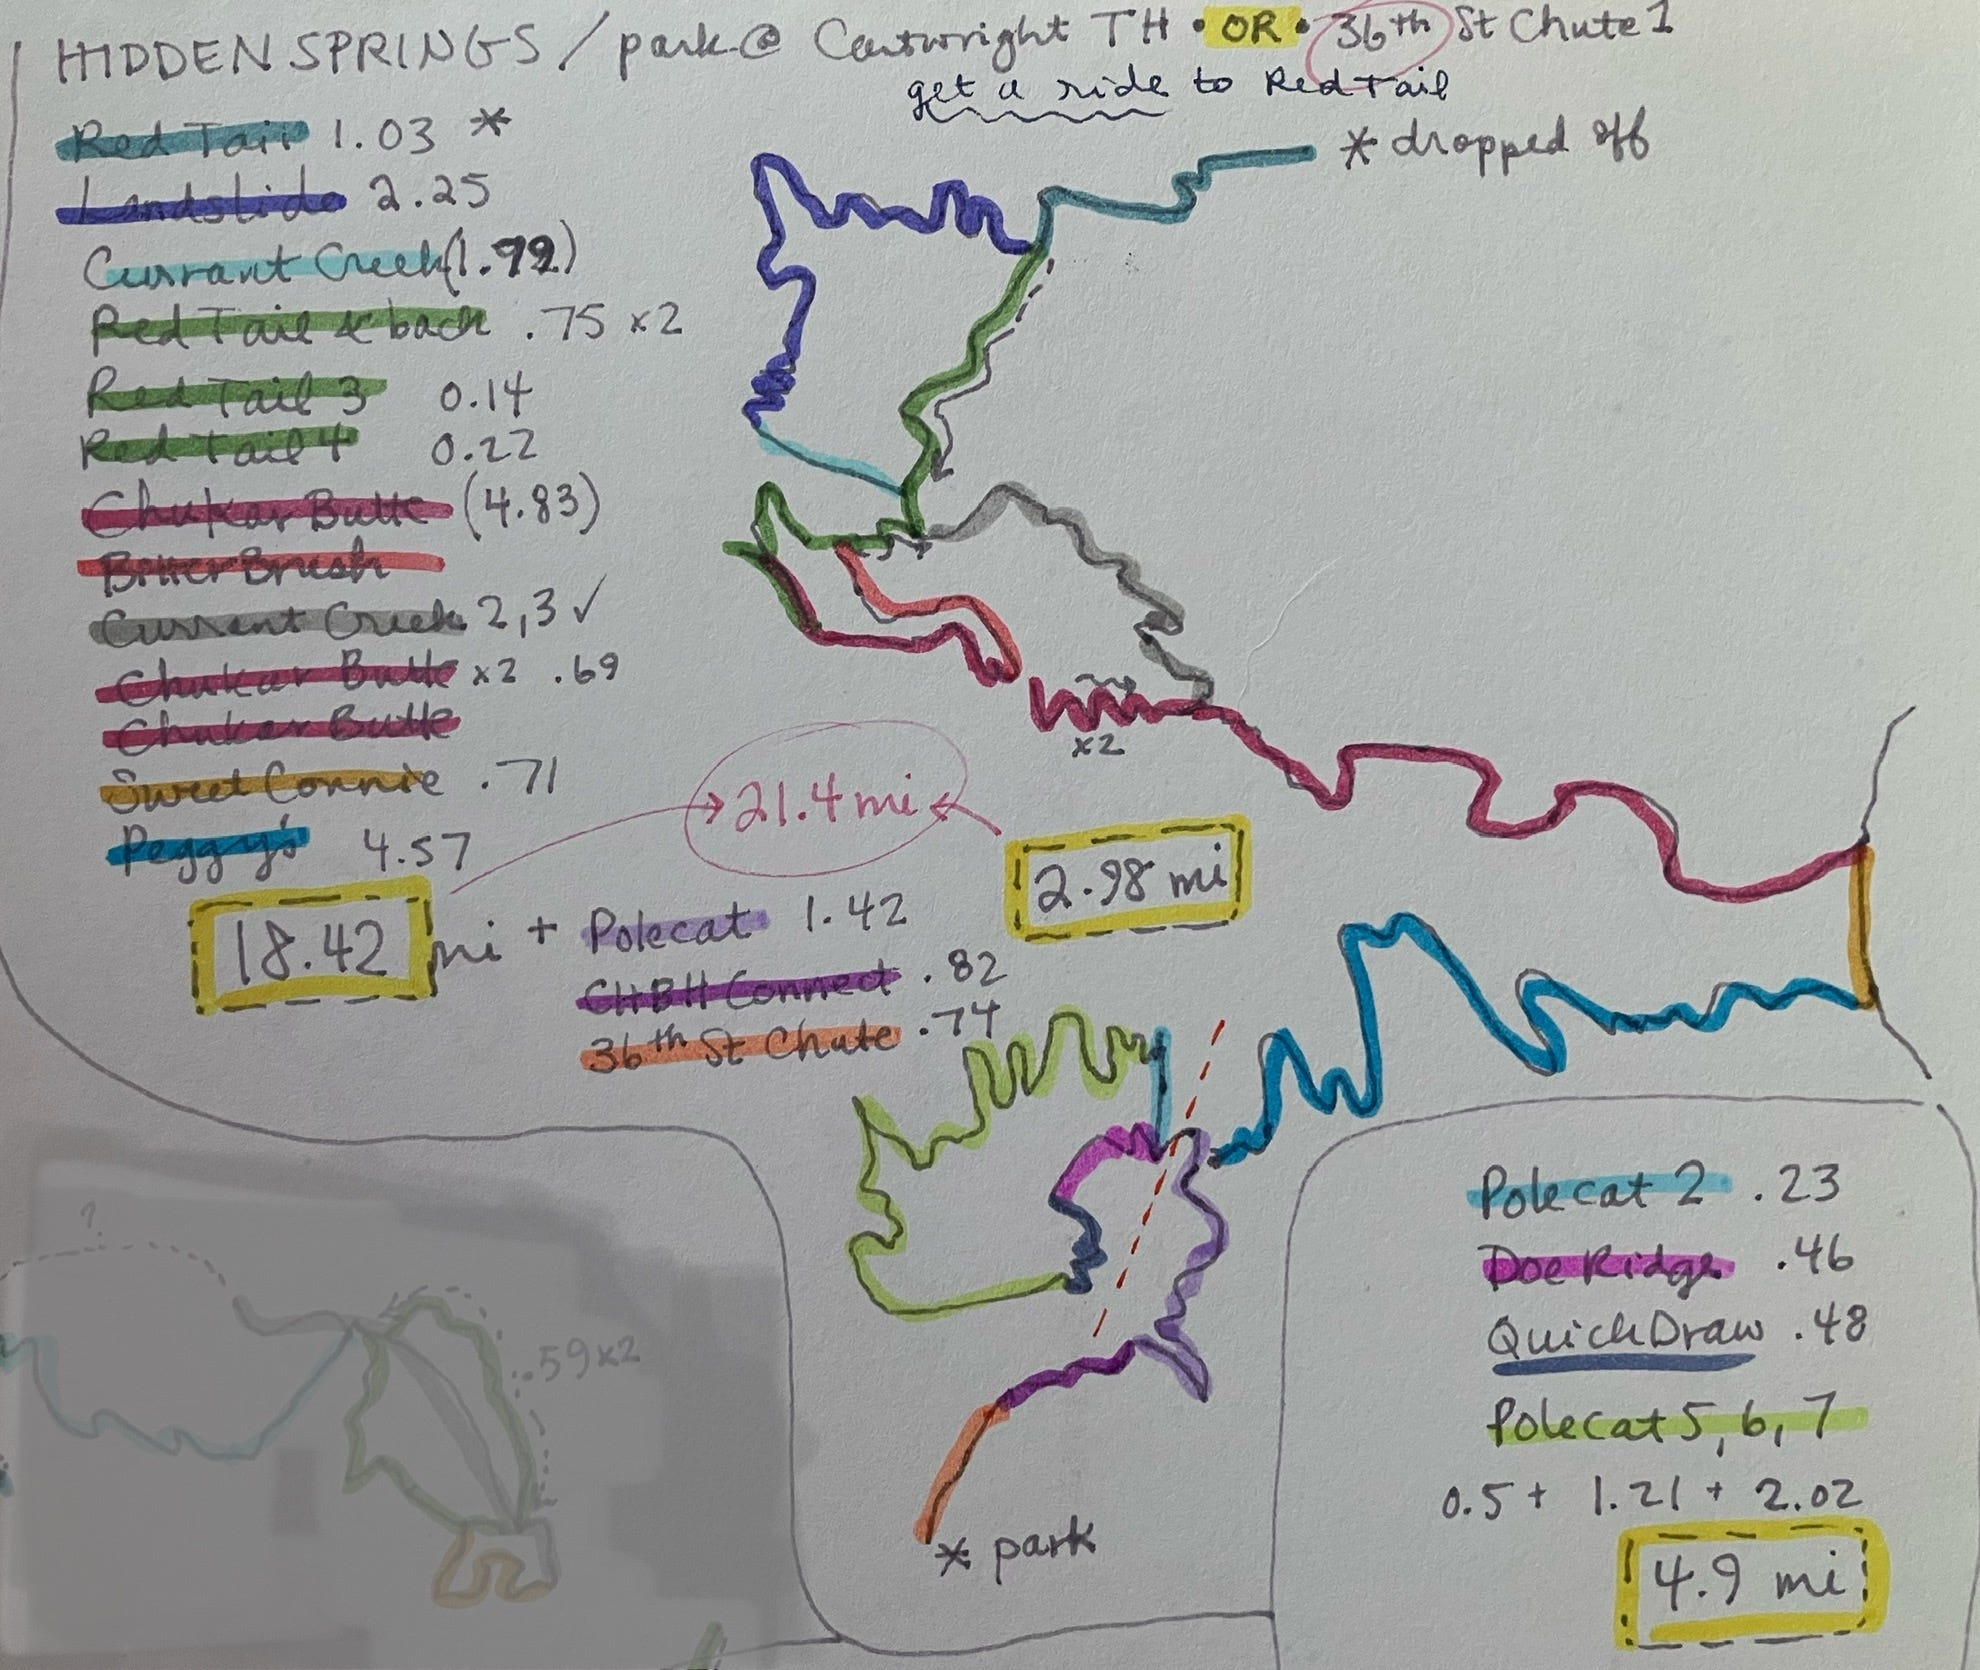 HIDDEN SPRINGS / park @ Cartwright TH • OR • 36th St Chute 1
get a ride to Red Tail
Red Tail 1.03 *
* dropped off
Landslide 2.25
Currant Creek (1.92)
Red Tail & back .75 x2
Red Tail 3 0.14
Red Tail 4 0.22
Chukar Butte (4.83)
Bitter Brush
Currant Creek 2,3 ✓
Chukar Butte x2 .69
Chukar Butte
x2
Sweet Connie .71
Peggy's 4.57
21.4 mi
2.98 mi
18.42 mi + Polecat 1.42
CHBH Connect .82
36th St Chute .74
Polecat 2 .23
Doe Ridge .46
QuickDraw .48
Polecat 5, 6, 7
0.5 + 1.21 + 2.02
4.9 mi
* park
?
.59x2